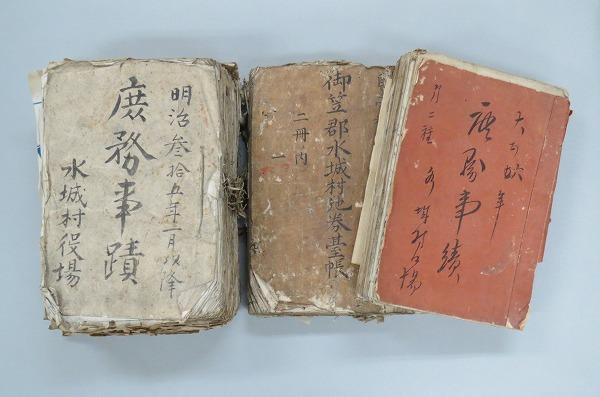 明治参拾五年一月以降
庶務事蹟
水城村役場
御笠郡水城村地券台帳
二冊内
一
庶務事績
水城村役場